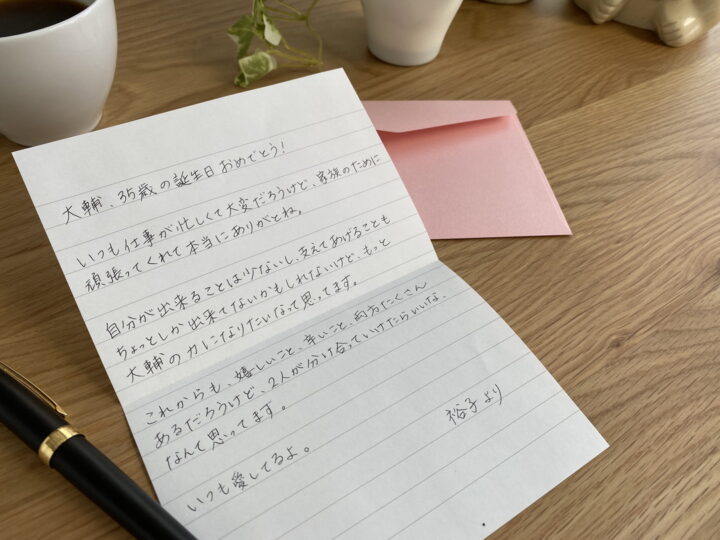 大輔、35歳の誕生日おめでとう!
いつも仕事が忙しくて大変だろうけど、家族のために
頑張ってくれて本当にありがとね。
自分が出来ることは少ないし、支えてあげることも
ちょっとしか出来てないかもしれないけど、もっと
大輔の力になりたいなって思ってます。
これからも、嬉しいこと、辛いこと、両方たくさん
あるだろうけど、2人が分け合っていけたらいいな、
なんて思ってます。
いつも愛してるよ。
裕子より